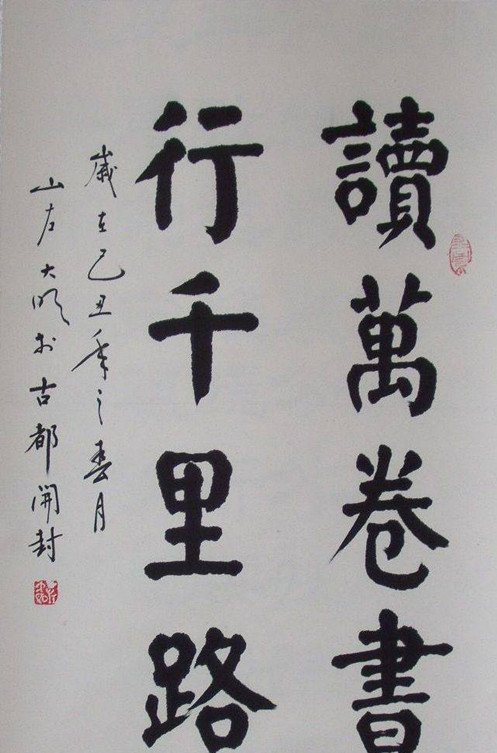 讀萬卷書
行千里路
歲在己丑年之春月
山左大明於古都開封